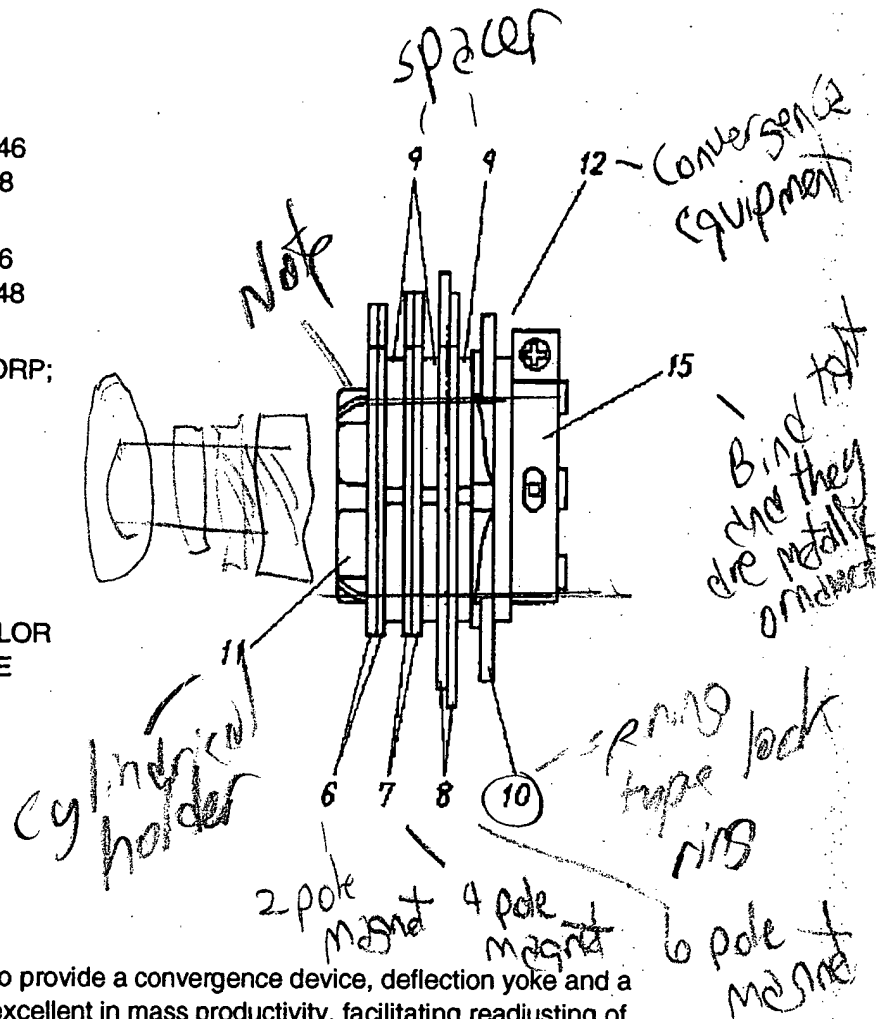 spacer
46
8
9 9 12 ~ Convergence
equipment
6
48
Note
ORP;
15
Bind tight
and they
are metallic
LOR
E
11
cylindrical
holder
6 7 8 10
ring
type lock
ring
2 pole
magnet
4 pole
magnet
6 pole
magnet
o provide a convergence device, deflection yoke and a
excellent in mass productivity, facilitating readjusting of